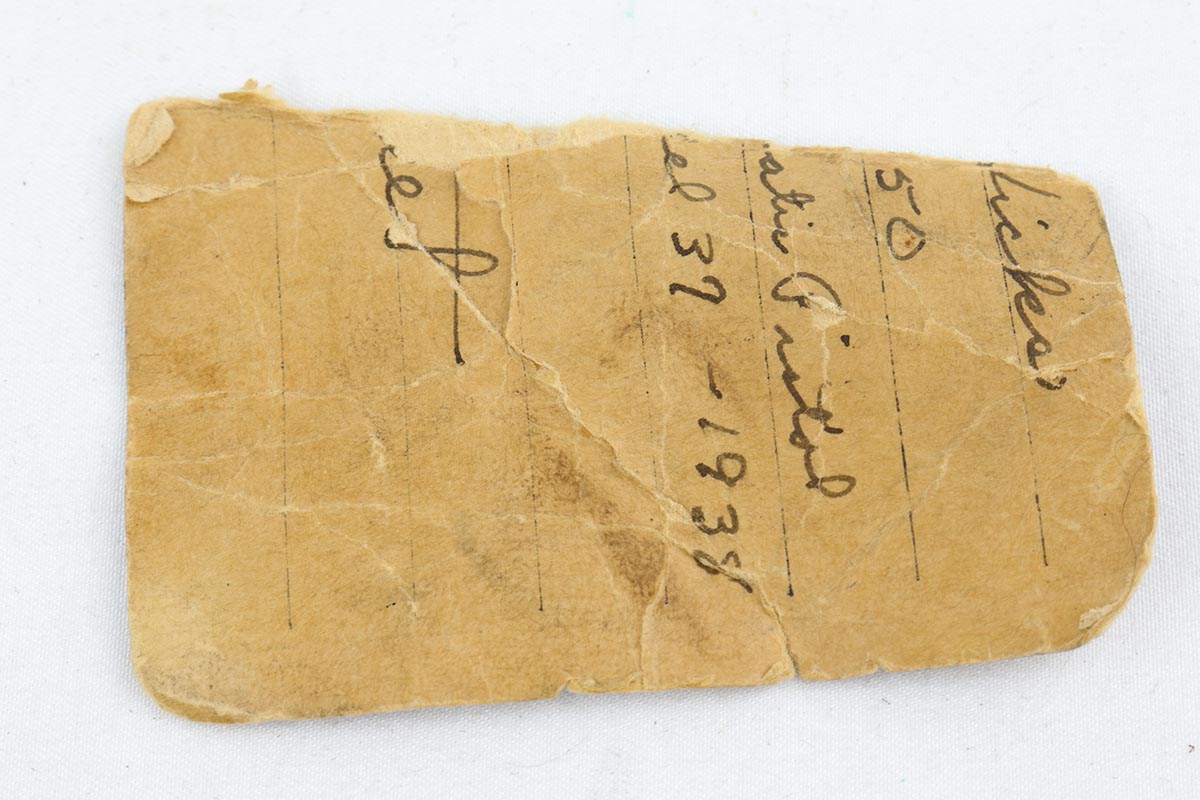 licks
50
atic Pistol
el 37 - 1938
ef